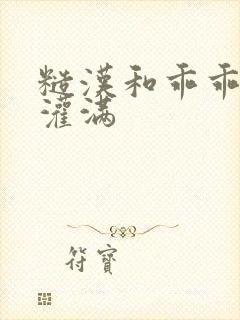 糙漢和乖乖
灌满
符寶